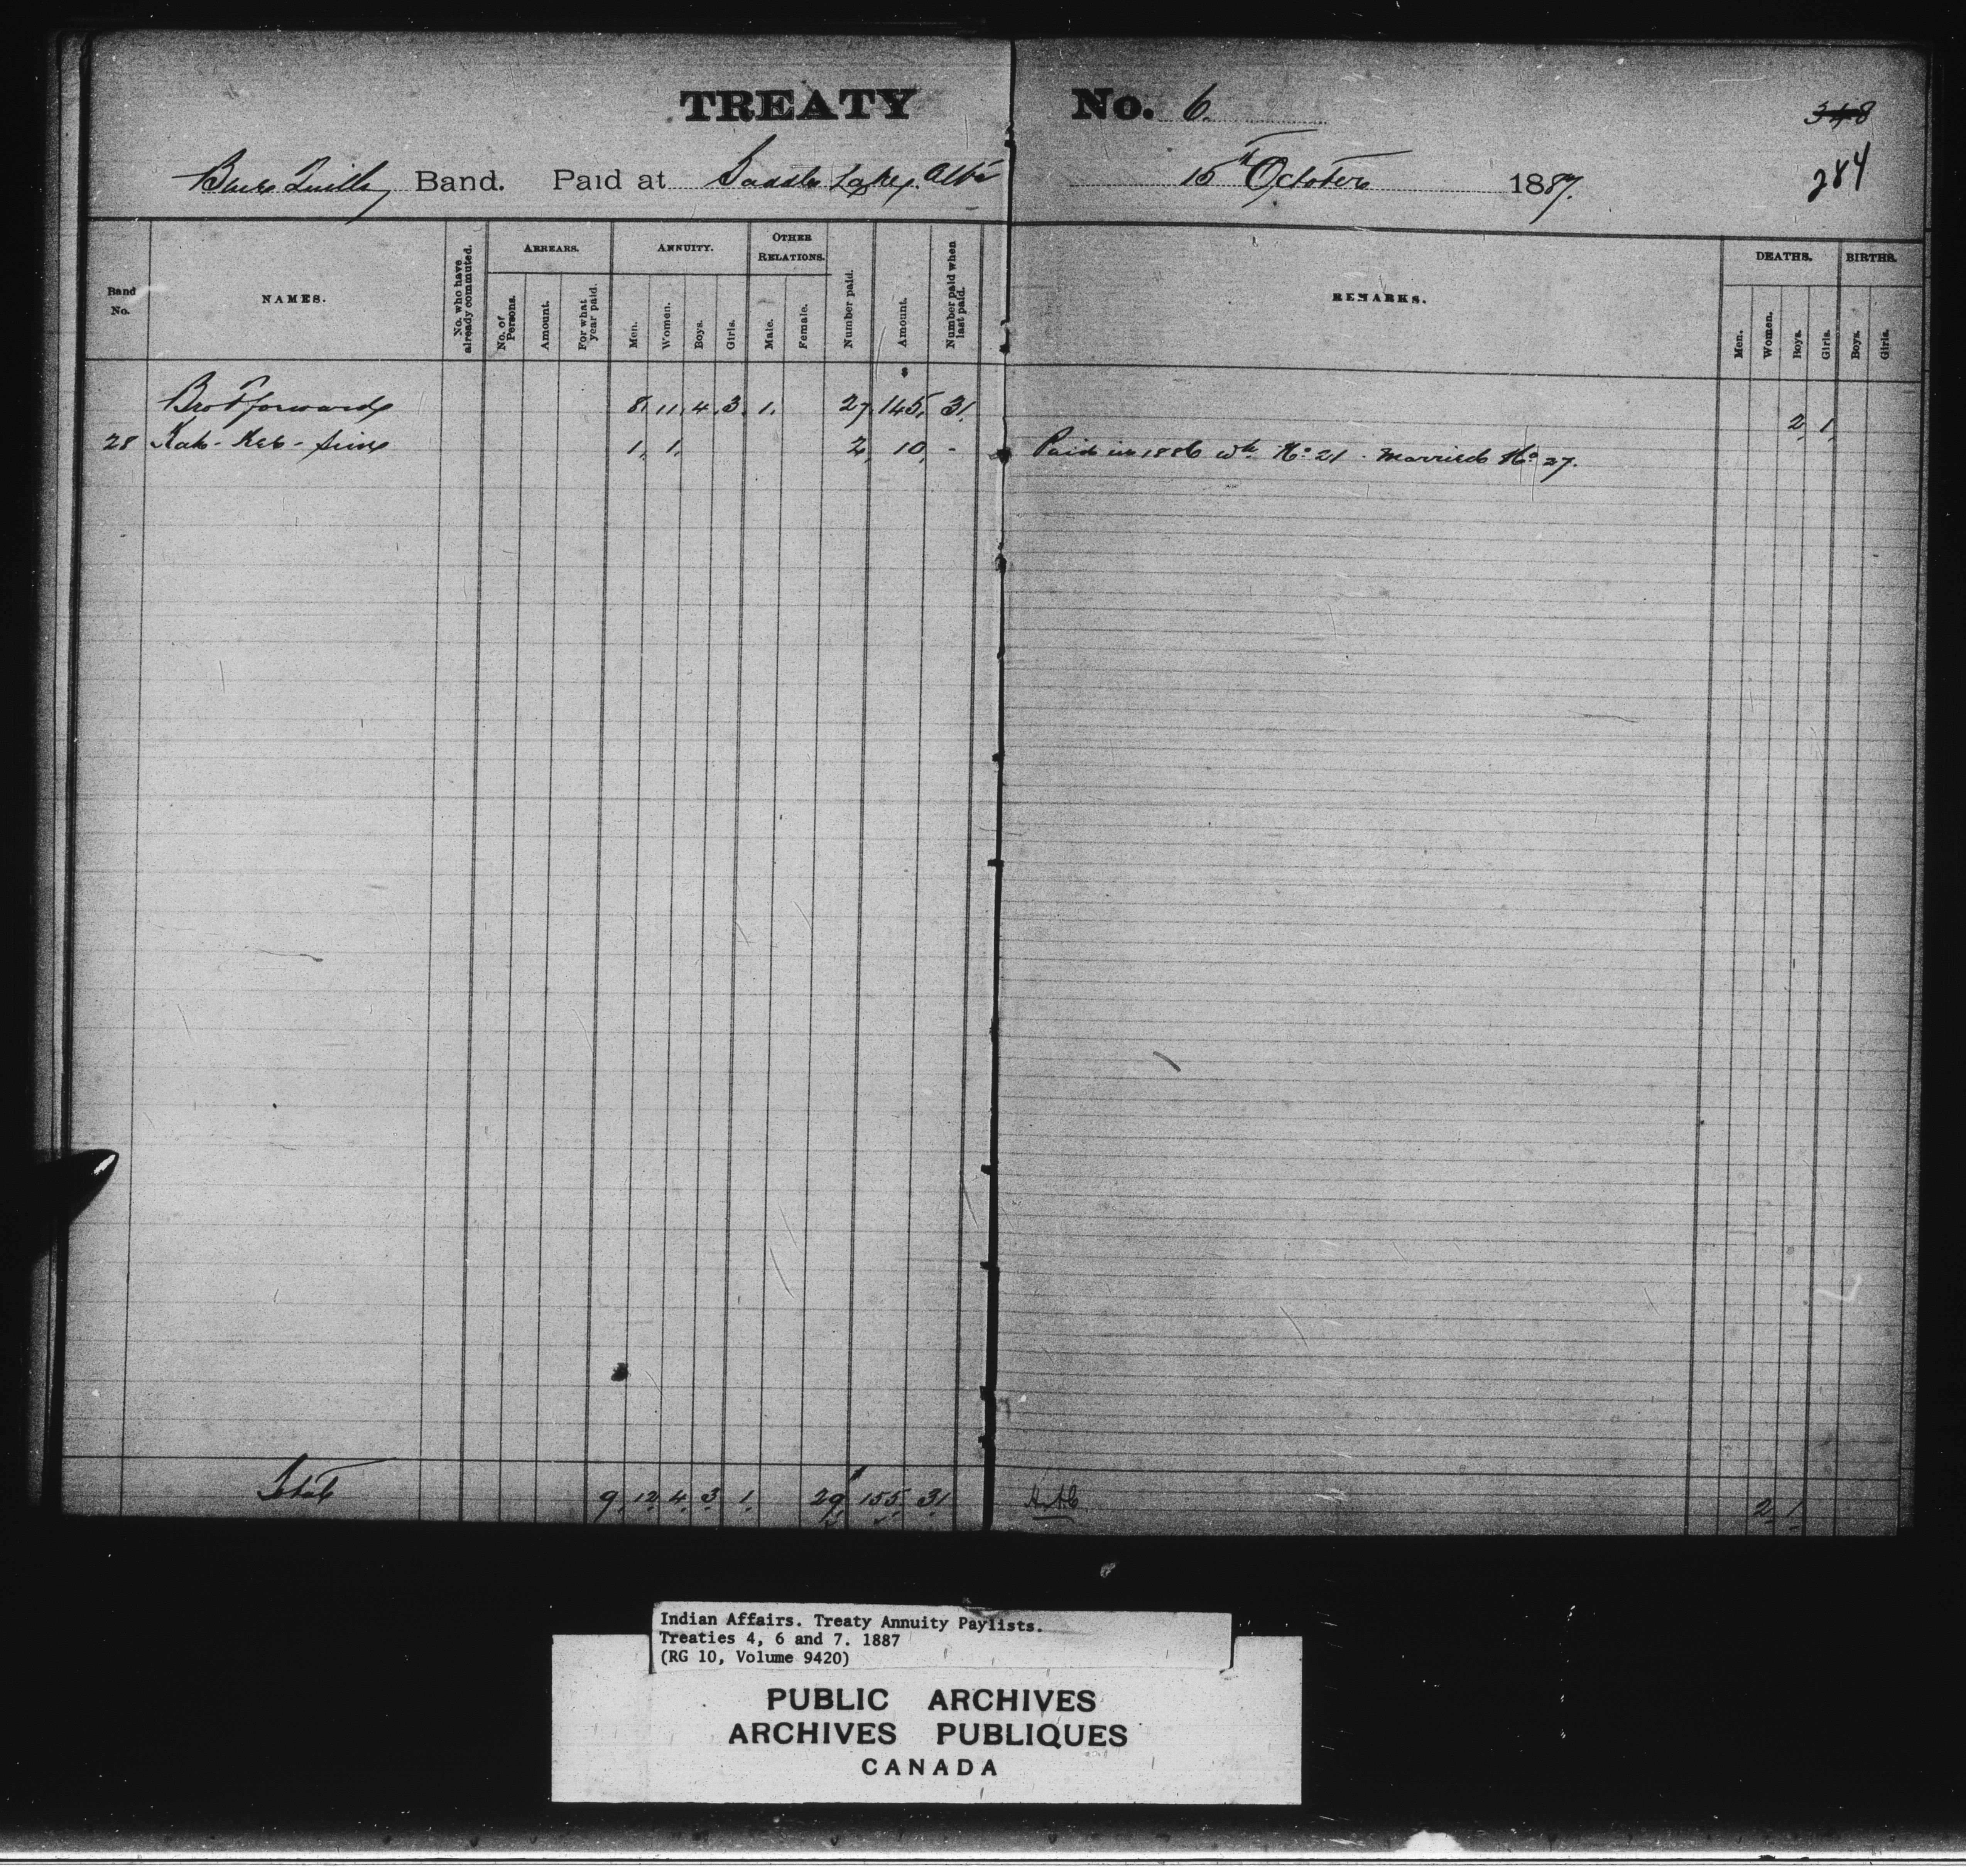 TREATY No. 6.
348
Blue Quills Band. Paid at Saddle Lake, Alta 15th October 1887.
284
Band No.
NAMES.
No. who have already commuted.
ARREARS.
No. of Persons.
Amount.
For what year paid.
ANNUITY.
Men.
Women.
Boys.
Girls.
OTHER RELATIONS.
Male.
Female.
Number paid.
Amount.
Number paid when last paid.
REMARKS.
DEATHS.
Men.
Women.
Boys.
Girls.
BIRTHS.
Boys.
Girls.
Brot forward 8. 11. 4. 3. 1. 27. 145. 31. 2. 1.
28 Kah-Kee- 1. 1. 2. 10. - Paid in 1886 wh No 21. Married No 27.
Total 9. 12. 4. 3. 1. 29. 155. 31 2. 1.
Indian Affairs. Treaty Annuity Paylists.
Treaties 4, 6 and 7. 1887
(RG 10, Volume 9420)
PUBLIC ARCHIVES
ARCHIVES PUBLIQUES
CANADA